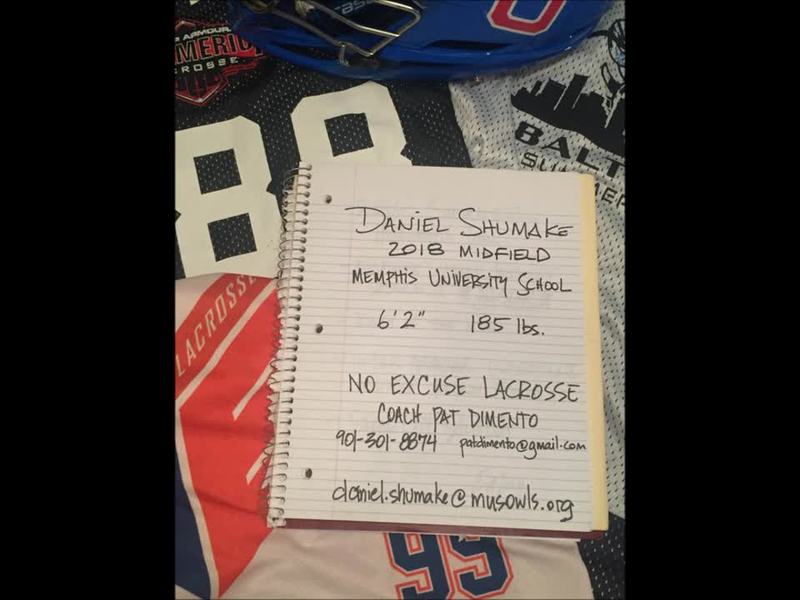 ARMOUR
AMERICA
CROSSE
88
BALT
SUMMER
LACROSSE
DANIEL SHUMAKE
2018 MIDFIELD
MEMPHIS UNIVERSITY SCHOOL
6'2" 185 lbs.
NO EXCUSE LACROSSE
COACH PAT DIMENTO
901-301-8874 patdimento@gmail.com
daniel.shumake@musowls.org
99